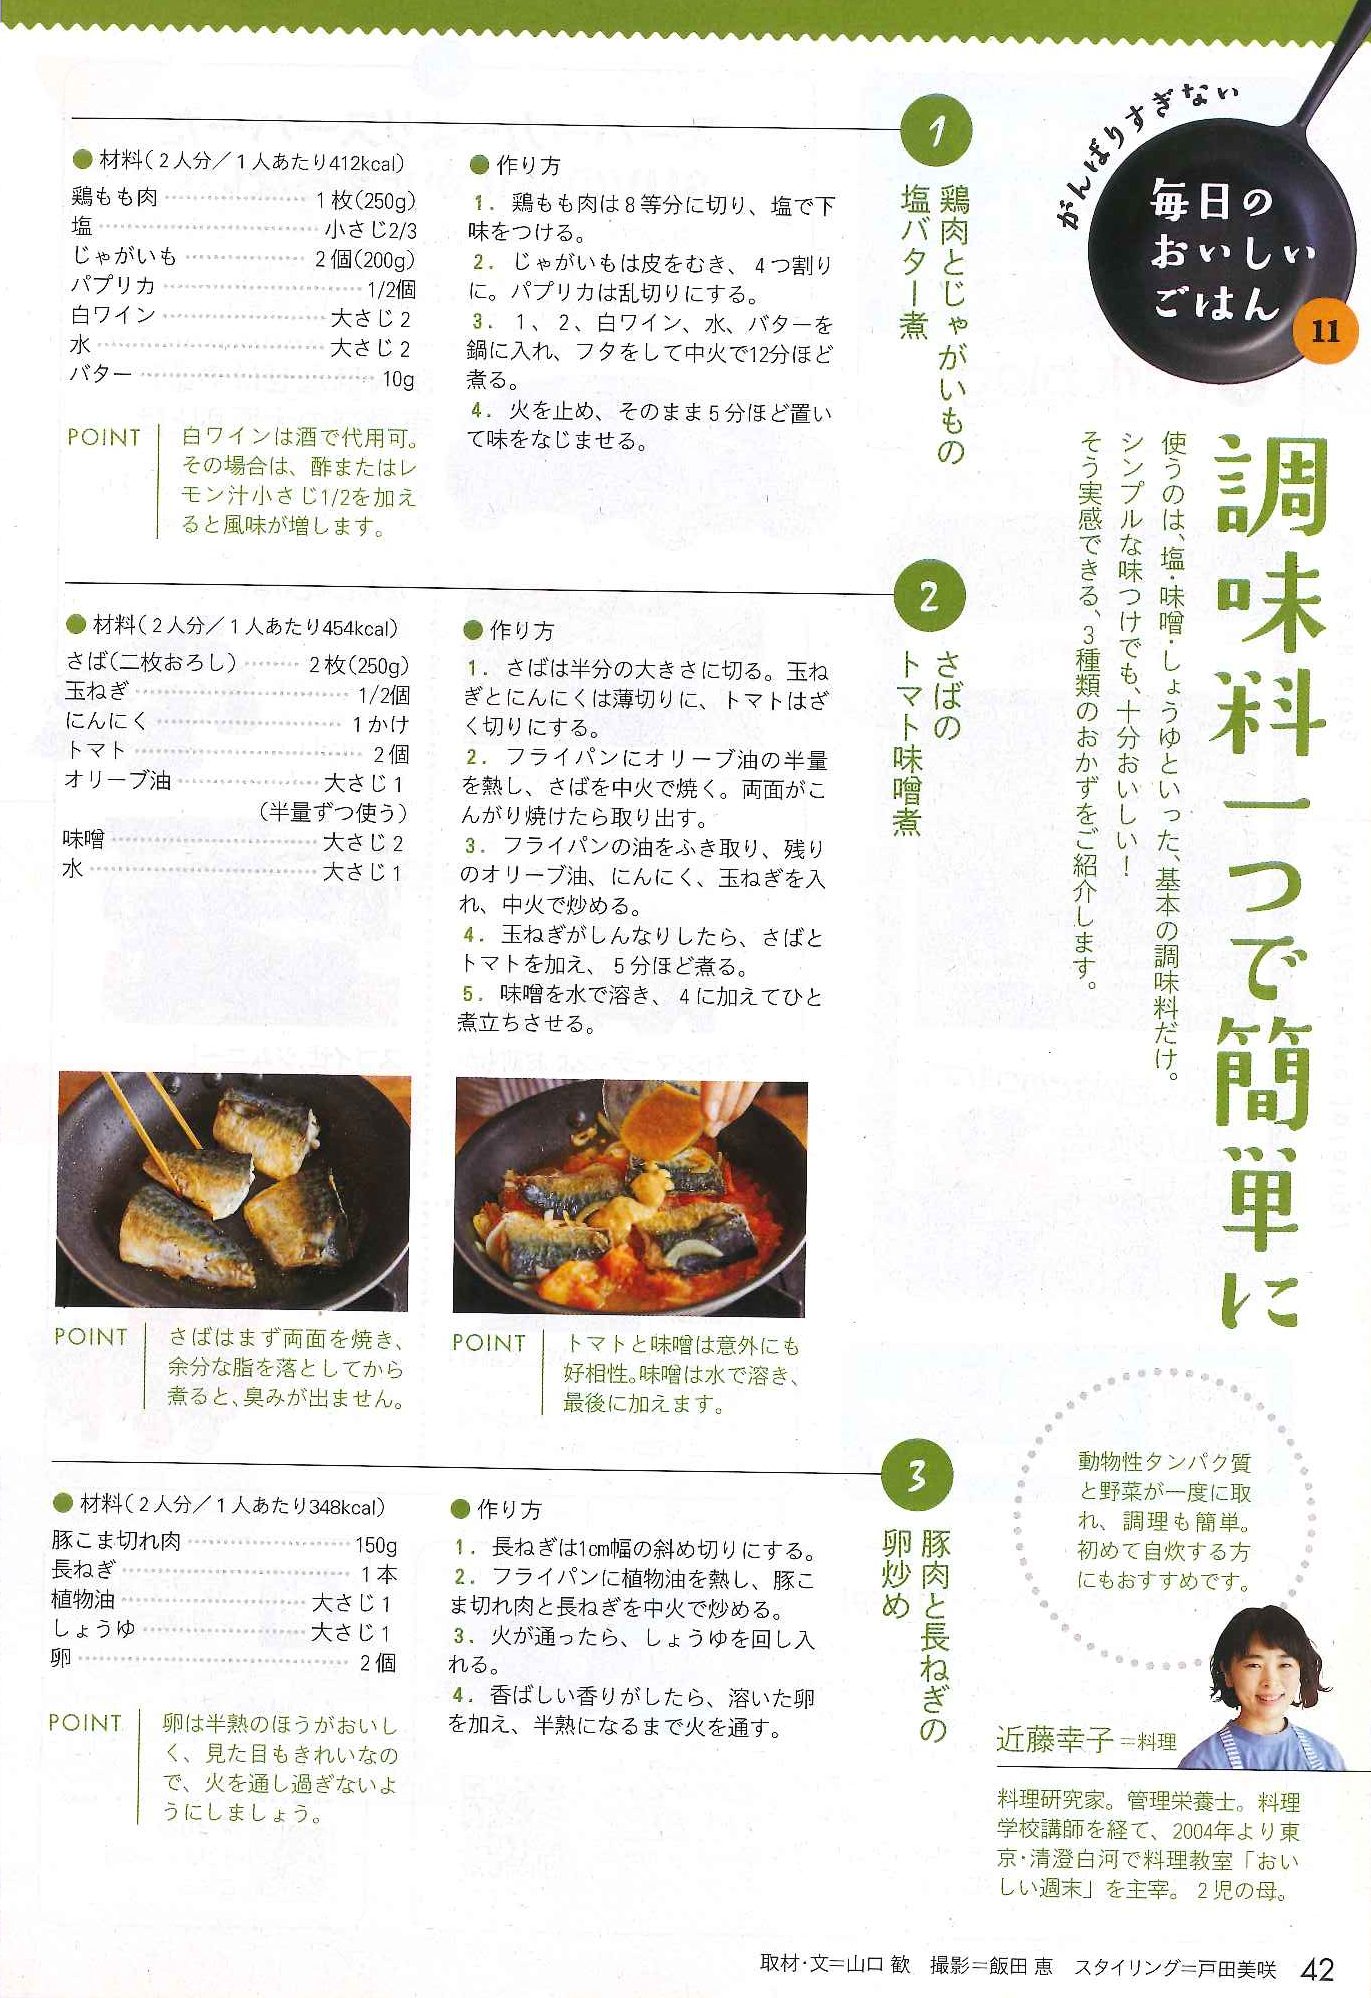 がんばりすぎない
毎日の
おいしい
ごはん
11
調味料一つで簡単に
使うのは、塩・味噌・しょうゆといった、基本の調味料だけ。
シンプルな味つけでも、十分おいしい！
そう実感できる、3種類のおかずをご紹介します。
1
鶏肉とじゃがいもの
塩バター煮
●材料（2人分／1人あたり412kcal）
鶏もも肉 1枚（250g）
塩 小さじ2/3
じゃがいも 2個（200g）
パプリカ 1/2個
白ワイン 大さじ2
水 大さじ2
バター 10g
POINT
白ワインは酒で代用可。
その場合は、酢またはレ
モン汁小さじ1/2を加え
ると風味が増します。
●作り方
1．鶏もも肉は8等分に切り、塩で下
味をつける。
2．じゃがいもは皮をむき、4つ割り
に。パプリカは乱切りにする。
3．1、2、白ワイン、水、バターを
鍋に入れ、フタをして中火で12分ほど
煮る。
4．火を止め、そのまま5分ほど置い
て味をなじませる。
2
さばの
トマト味噌煮
●材料（2人分／1人あたり454kcal）
さば（二枚おろし） 2枚（250g）
玉ねぎ 1/2個
にんにく 1かけ
トマト 2個
オリーブ油 大さじ1
（半量ずつ使う）
味噌 大さじ2
水 大さじ1
●作り方
1．さばは半分の大きさに切る。玉ね
ぎとにんにくは薄切りに、トマトはざ
く切りにする。
2．フライパンにオリーブ油の半量
を熱し、さばを中火で焼く。両面がこ
んがり焼けたら取り出す。
3．フライパンの油をふき取り、残り
のオリーブ油、にんにく、玉ねぎを入
れ、中火で炒める。
4．玉ねぎがしんなりしたら、さばと
トマトを加え、5分ほど煮る。
5．味噌を水で溶き、4に加えてひと
煮立ちさせる。
POINT
さばはまず両面を焼き、
余分な脂を落としてから
煮ると、臭みが出ません。
POINT
トマトと味噌は意外にも
好相性。味噌は水で溶き、
最後に加えます。
3
豚肉と長ねぎの
卵炒め
●材料（2人分／1人あたり348kcal）
豚こま切れ肉 150g
長ねぎ 1本
植物油 大さじ1
しょうゆ 大さじ1
卵 2個
POINT
卵は半熟のほうがおいし
く、見た目もきれいなの
で、火を通し過ぎないよ
うにしましょう。
●作り方
1．長ねぎは1cm幅の斜め切りにする。
2．フライパンに植物油を熱し、豚こ
ま切れ肉と長ねぎを中火で炒める。
3．火が通ったら、しょうゆを回し入
れる。
4．香ばしい香りがしたら、溶いた卵
を加え、半熟になるまで火を通す。
動物性タンパク質
と野菜が一度に取
れ、調理も簡単。
初めて自炊する方
にもおすすめです。
近藤幸子＝料理
料理研究家。管理栄養士。料理
学校講師を経て、2004年より東
京・清澄白河で料理教室「おい
しい週末」を主宰。2児の母。
取材・文＝山口 歓　撮影＝飯田 恵　スタイリング＝戸田美咲　42